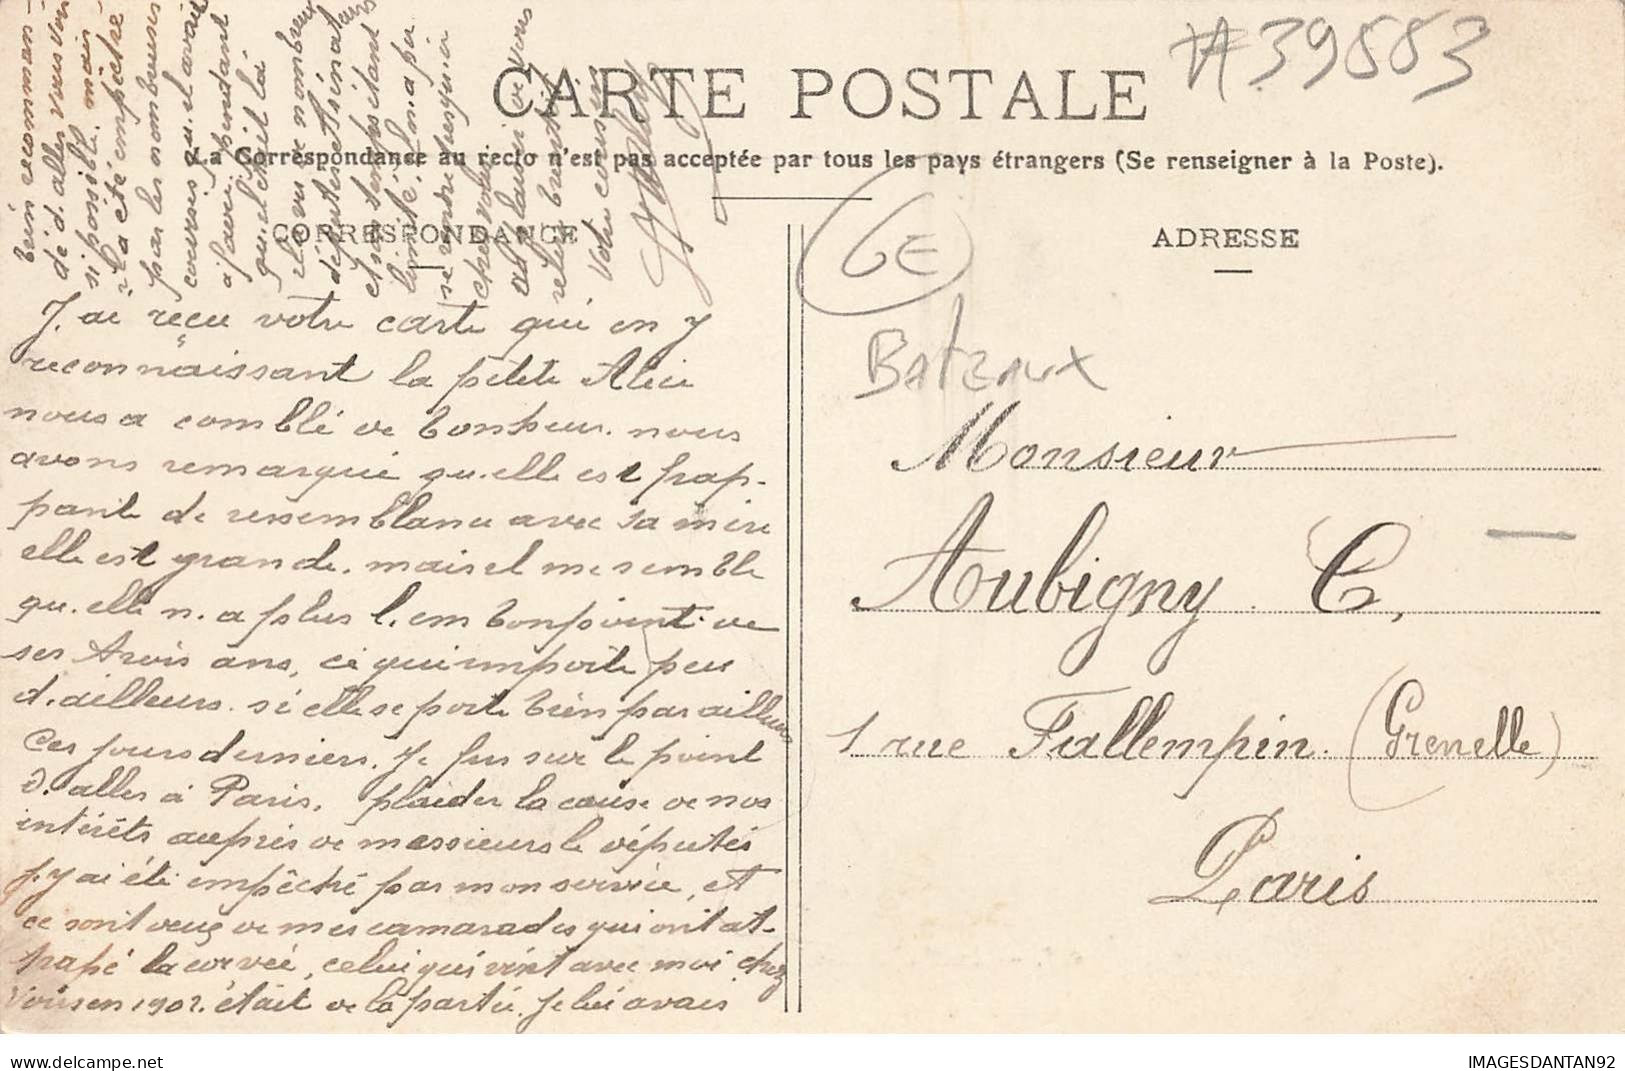 #39553
CARTE POSTALE
La Correspondance au recto n'est pas acceptée par tous les pays étrangers (Se renseigner à la Poste).
CORRESPONDANCE
J.ai reçu votre carte qui en y
reconnaissant la petite Alice
nous a comblé de bonheur. nous
avons remarqué qu.elle est frap-
pante de ressemblance avec sa mère
elle est grande. mais il me semble
qu.elle n.a plus l.embonpoint de
ses trois ans, ce qui importe peu
d.ailleurs. si elle se porte bien par ailleurs
Ces jours derniers. Je fus sur le point
d.aller à Paris, plaider la cause de nos
intérêts auprès de messieurs le députés
j.y ai été empêché par mon service, et
ce sont deux de mes camarades qui ont at-
trapé la corvée, celui qui vint avec moi chez
Vous en 1902. était de la partie. Je lui avais
bien recomman-
dé d.aller vous voir
si possible. mais
il a été empêché
par les nombreuses
courses qu.il avait
à faire pendant
qu.il était là
il a vu de nombreux
députés et sénateurs
et son temps étant
limité, il n.a pu
se rendre jusqu.ici
chez vous
au plaisir de vous
relire bientôt
Votre cousin
GE
Bateaux
ADRESSE
Monsieur
Aubigny C,
1 rue Fallempin. (Grenelle)
Paris
delcampe.net
IMAGESDANTAN92